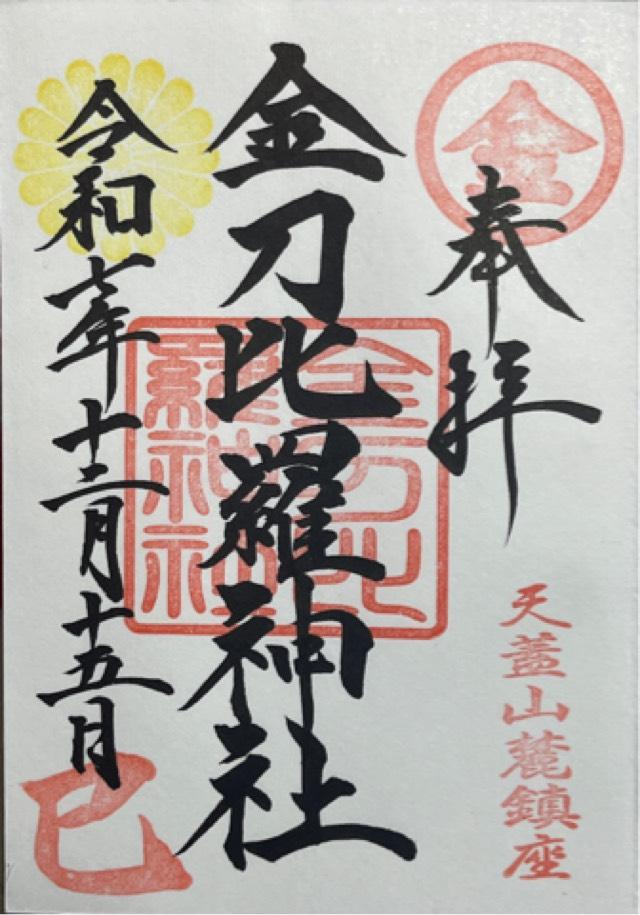 金
奉拝
天蓋山麓鎮座
金刀比羅神社
金刀比
羅神社
令和七年十二月十五日
巳